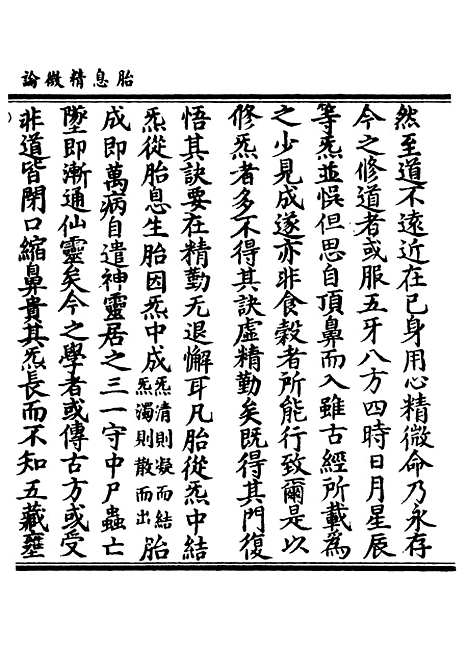 胎息精微論
然至道不遠近在已身用心精微命乃永存
今之修道者或服五牙八方四時日月星辰
等炁並悮但思自頂鼻而入雖古經所載為
之少見成遂亦非食穀者所能行致爾是以
修炁者多不得其訣虛精勤矣既得其門復
悟其訣要在精勤无退懈耳凡胎從炁中結
炁從胎息生胎因炁中成炁清則凝而結炁濁則散而出胎
成即萬病自遣神靈居之三一守中尸蟲亡
墜即漸通仙靈矣今之學者或傳古方或受
非道皆閉口縮鼻貴其炁長而不知五藏壅